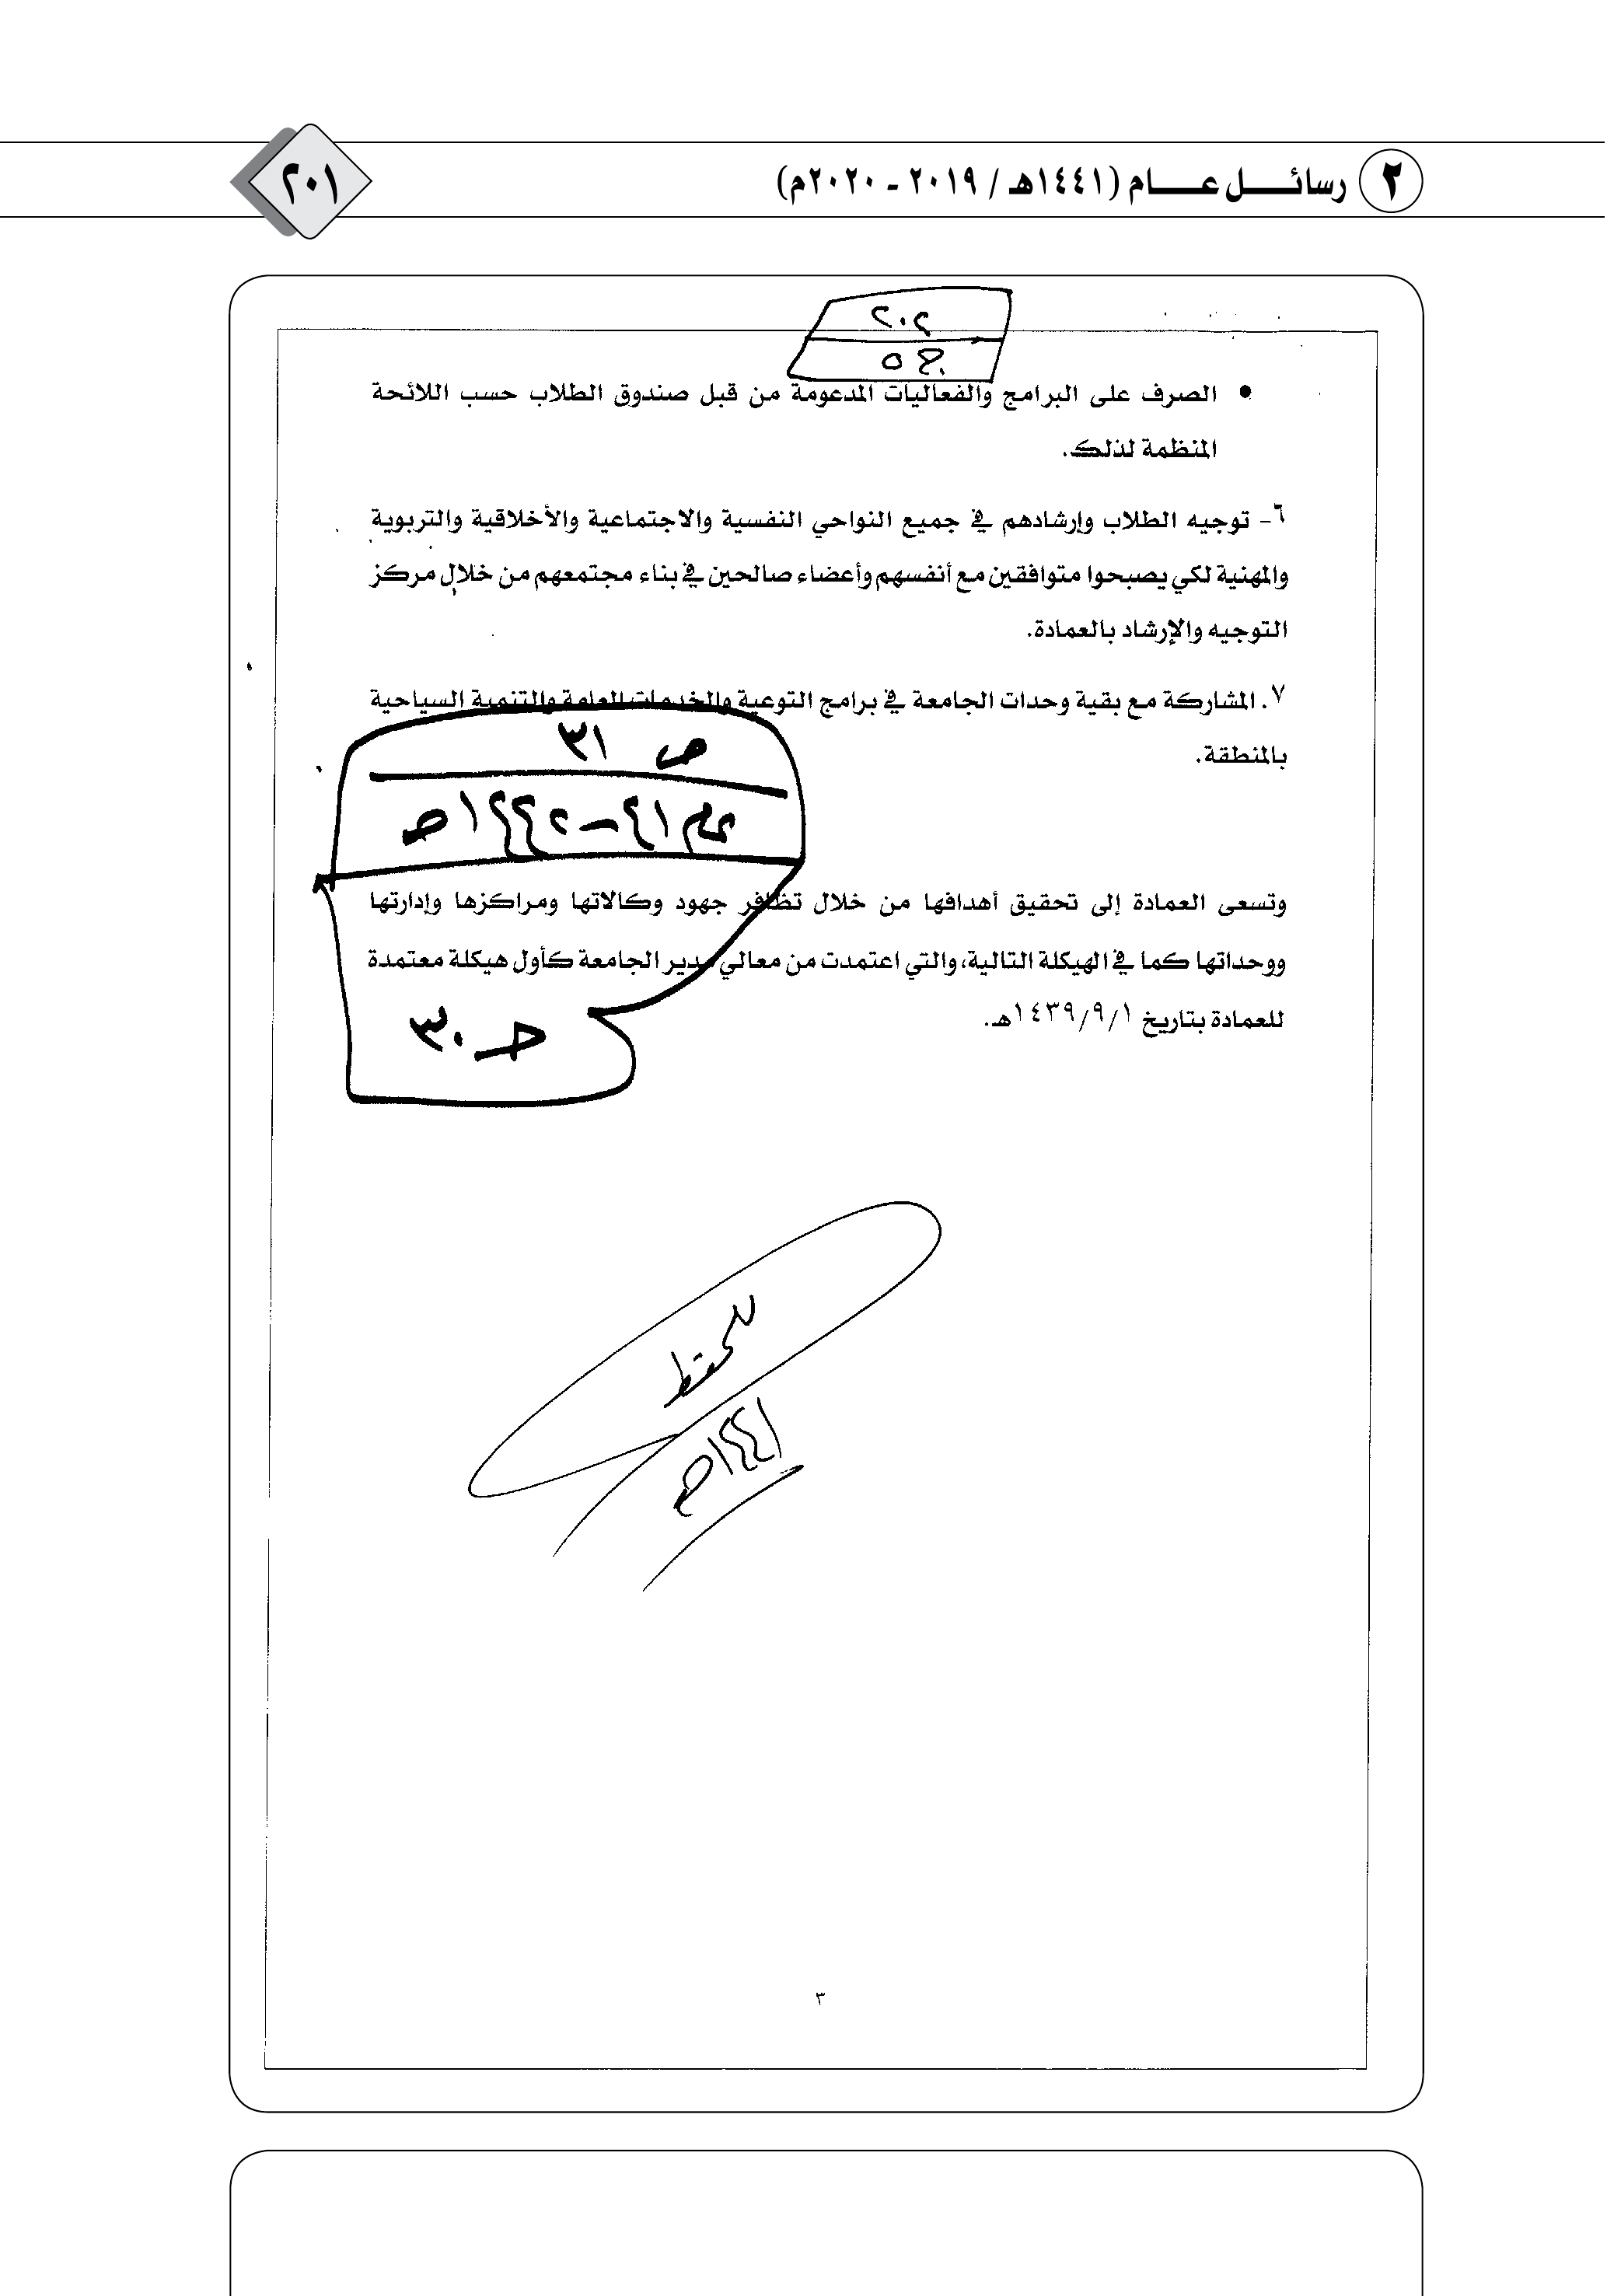 ٢ رسائل عام (١٤٤١هـ / ٢٠١٩ - ٢٠٢٠م)
٢٠١
٢٠٢
ج ٥
• الصرف على البرامج والفعاليات المدعومة من قبل صندوق الطلاب حسب اللائحة
المنظمة لذلك.
٦- توجيه الطلاب وإرشادهم في جميع النواحي النفسية والاجتماعية والأخلاقية والتربوية
والمهنية لكي يصبحوا متوافقين مع أنفسهم وأعضاء صالحين في بناء مجتمعهم من خلال مركز
التوجيه والإرشاد بالعمادة.
٧. المشاركة مع بقية وحدات الجامعة في برامج التوعية والخدمات العامة والتنمية السياحية
بالمنطقة.
ص ٣١
عام ٤١-١٤٤٢هـ
وتسعى العمادة إلى تحقيق أهدافها من خلال تظافر جهود وكالاتها ومراكزها وإدارتها
ووحداتها كما في الهيكلة التالية، والتي اعتمدت من معالي مدير الجامعة كأول هيكلة معتمدة
للعمادة بتاريخ ١٤٣٩/٩/١هـ.
حـ ٣٠
للحفظ
١٤٤١هـ
٣